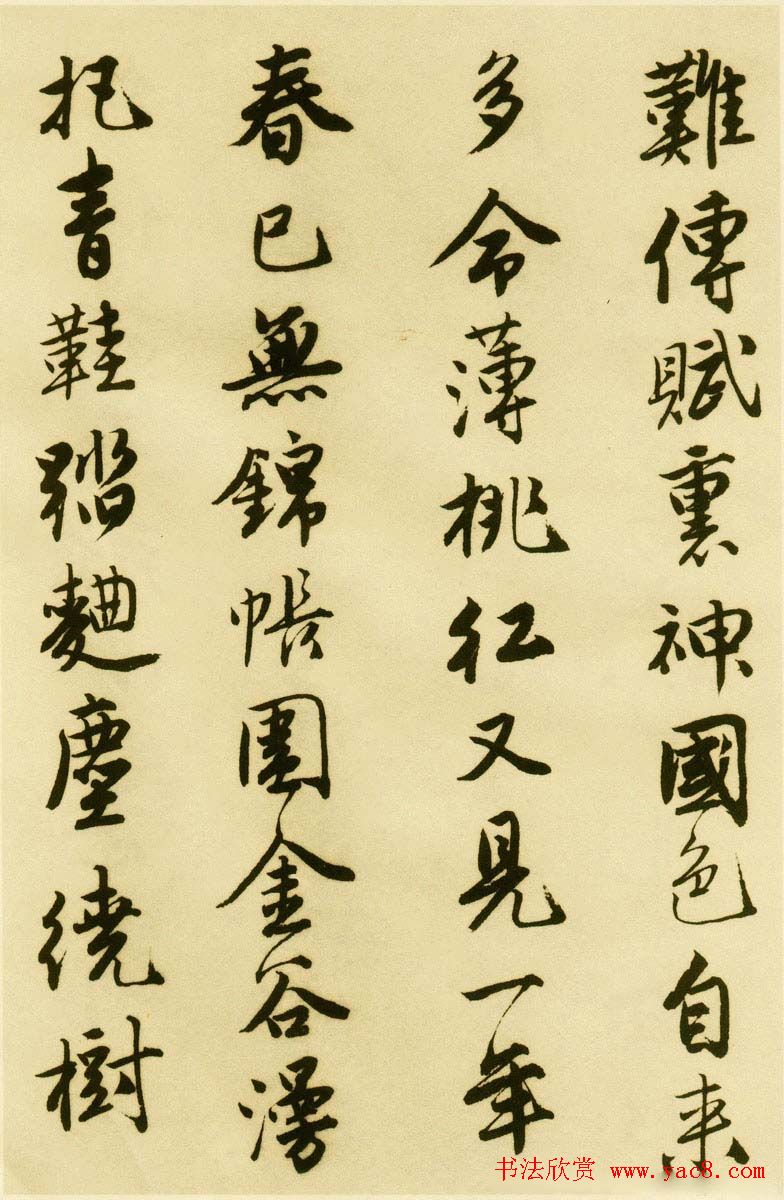 難傳賦裏神國色自来
多命薄桃紅又見一年
春已無錦帳圍金谷漫
把青鞋踏麯塵繞樹
书法欣赏 www.yac8.com